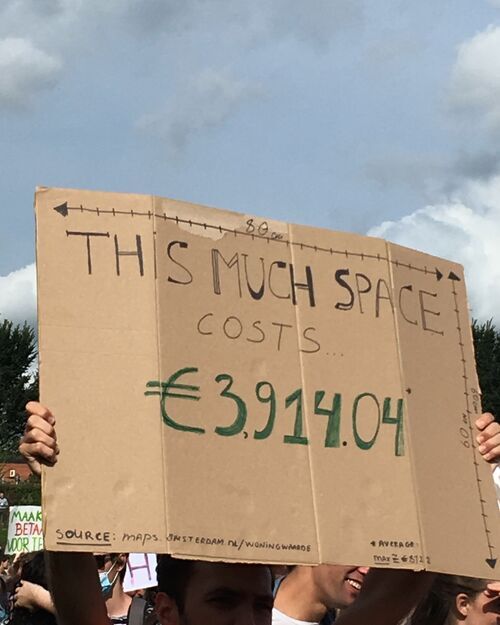 80 cm
THIS MUCH SPACE
COSTS...
€3,914.04*
60 cm
SOURCE: maps.amsterdam.nl/woningwaarde
* AVERAGE
MAAK
BETA
VOOR
H